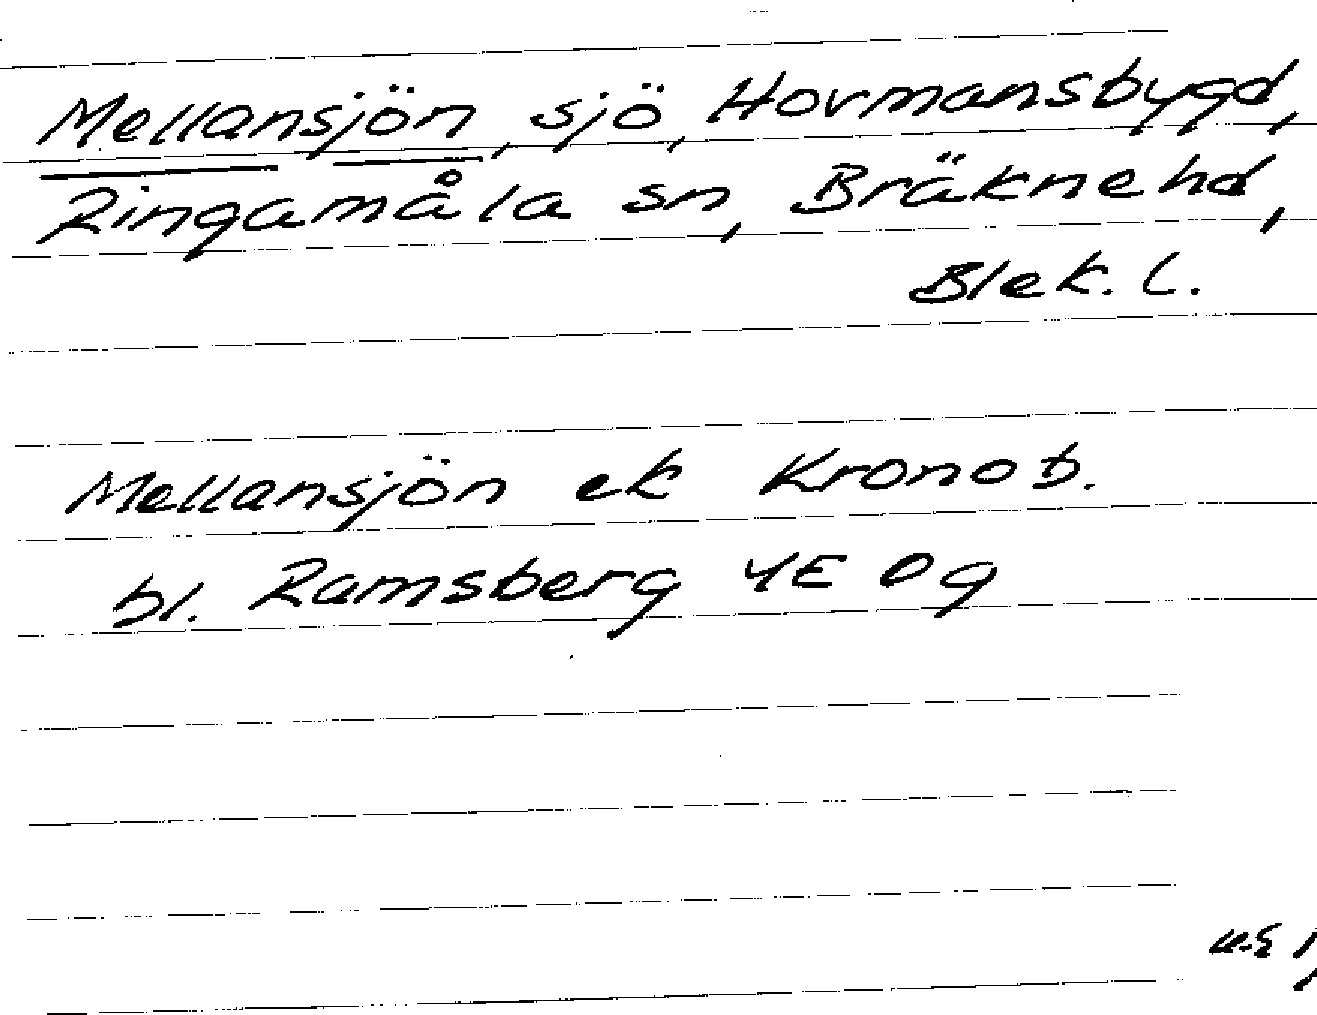 Mellansjön, sjö, Hovmansbygd,
Ringamåla sn, Bräknehd,
Blek. l.
Mellansjön ek Kronob.
bl. Ramsberg 4E 0g